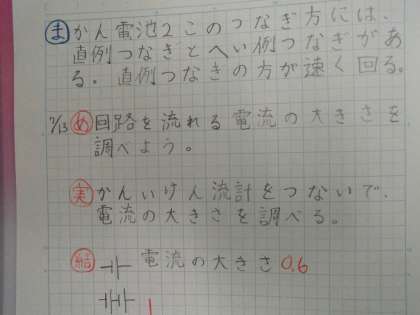 ま かん電池2このつなぎ方には、
直例つなぎとへい例つなぎがあ
る。直例つなぎの方が速く回る。
7/13 め 回路を流れる電流の大きさを
調べよう。
実 かんいけん流計をつないで、
電流の大きさを調べる。
結 電流の大きさ0.6
1